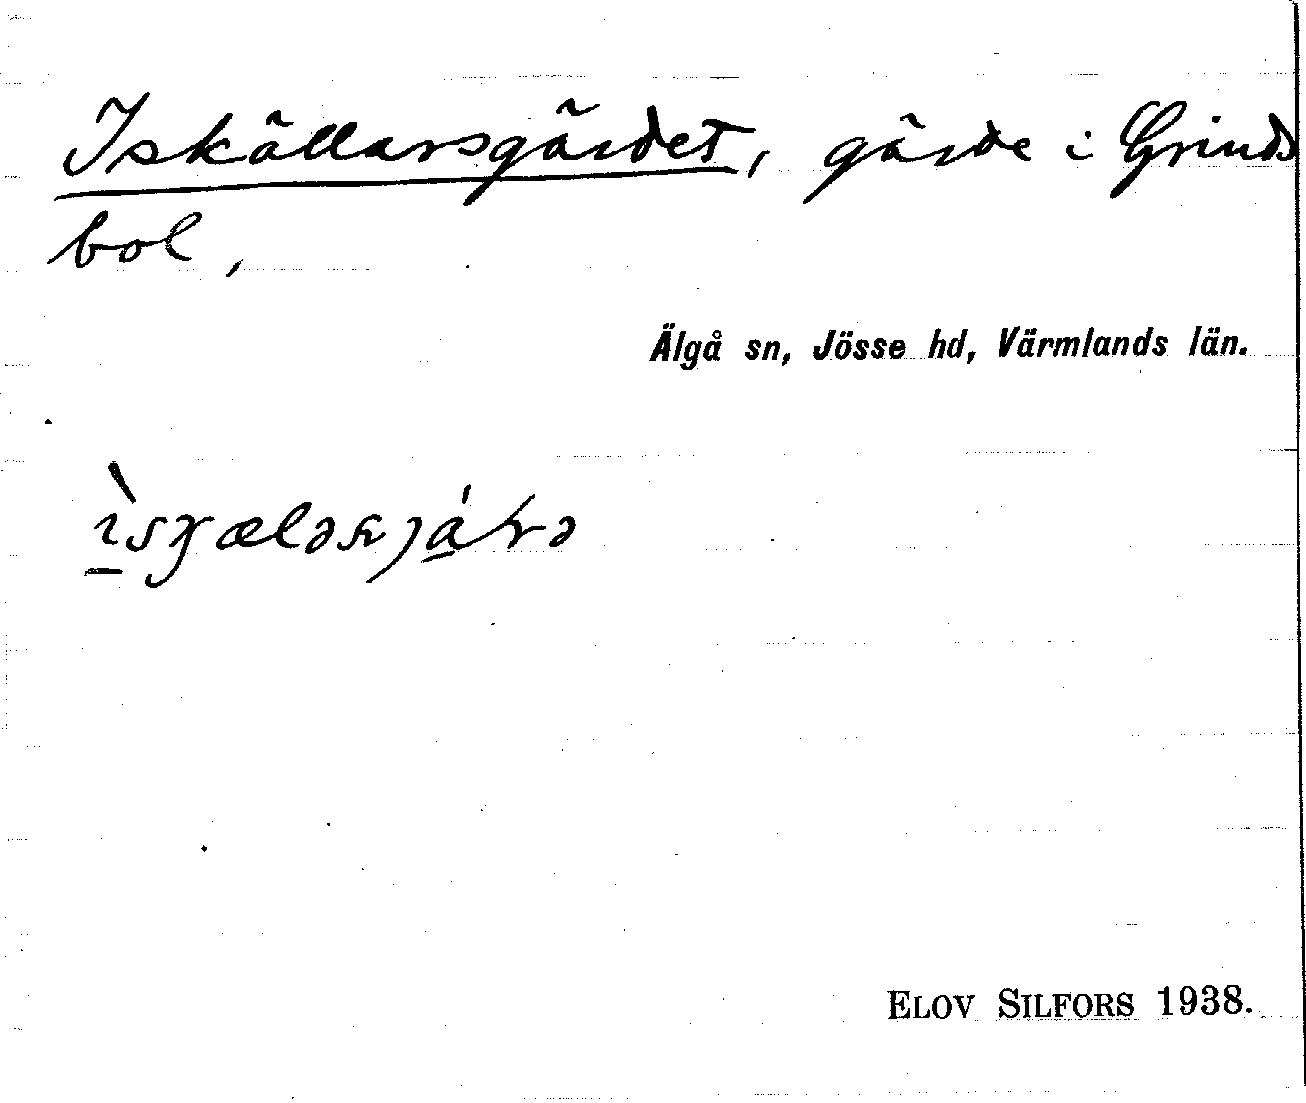 Iskällarsgärdet, gärde i Grinds
bol,
Älgå sn, Jösse hd, Värmlands län.
ELOV SILFORS 1938.